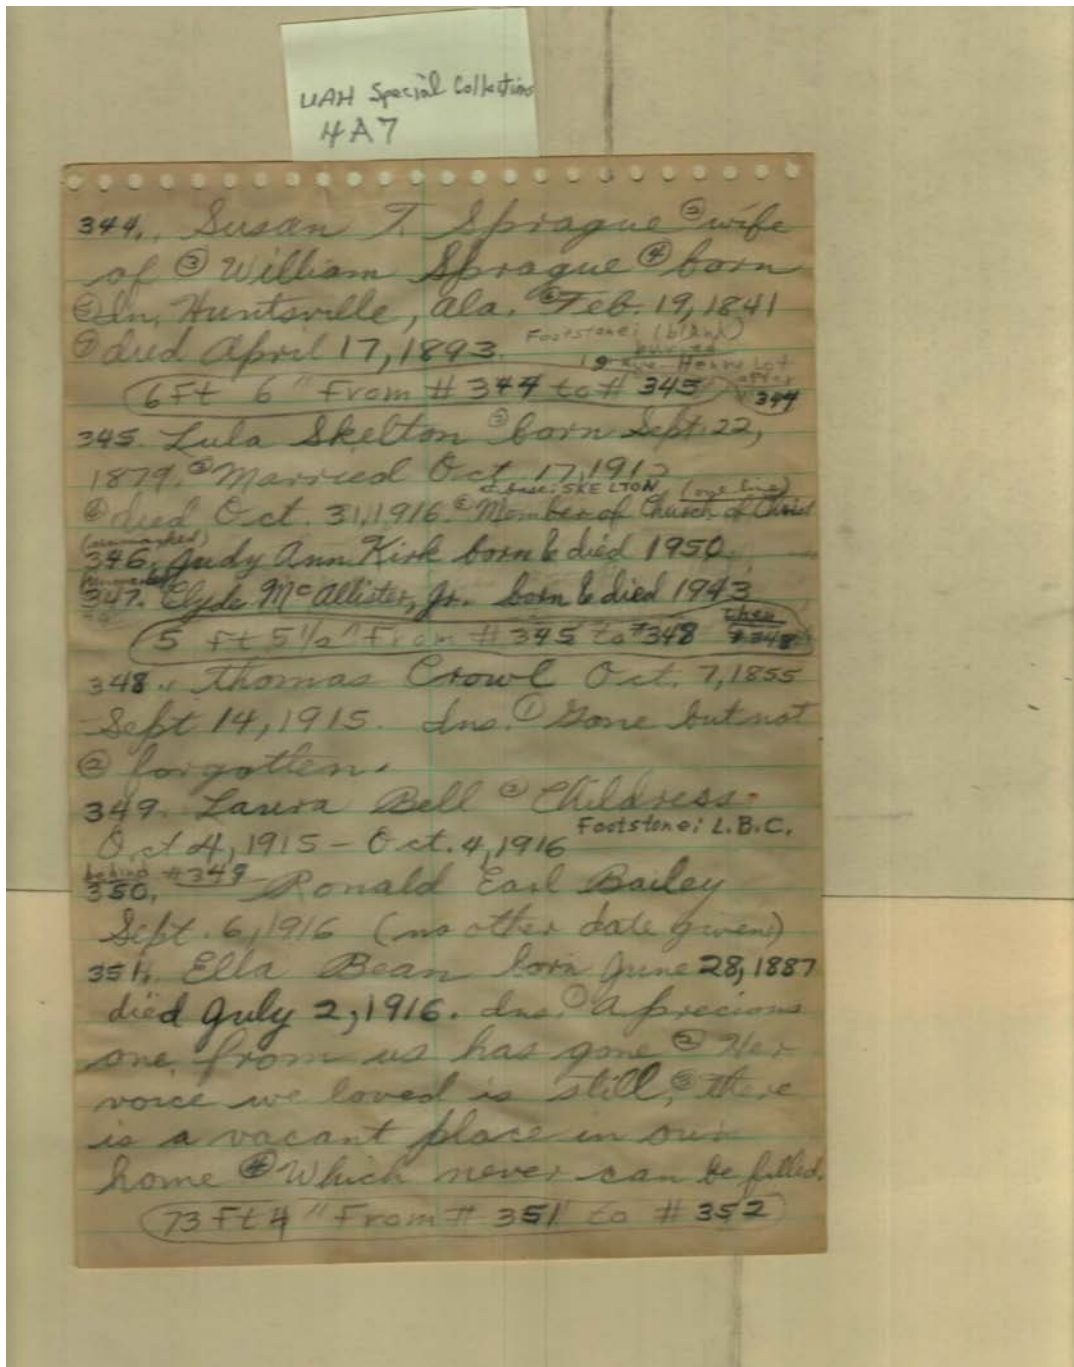 UAH Special Collections
4A7
344. Susan T. Sprague ② wife
of ③ William Sprague ④ born
⑤ In. Huntsville, Ala. ⑥ Feb. 19, 1841
⑦ died April 17, 1893. Footstone: (blank)
buried
Lot
6 Ft 6" From # 344 to # 345 after 344
345. Lula Skelton ② born Sept. 22,
1879. ③ Married Oct. 17, 191
base: SKELTON (one line)
④ died Oct. 31, 1916. ⑤ Member of Church of Christ
(unmarked)
346. Judy Ann Kirk born & died 1950.
347. Clyde McAllister, Jr. born & died 1943
5 Ft 5 1/2" From # 345 to # 348 then # 348
348. Thomas Crowl Oct. 7, 1855
Sept 14, 1915. Ins. ① Gone but not
② forgotten.
349. Laura Bell ② Childress.
Footstone: L.B.C.
Oct 4, 1915 – Oct. 4, 1916
behind # 349
350. Ronald Earl Bailey
Sept. 6, 1916 (no other date given)
351. Ella Bean born June 28, 1887
died July 2, 1916. Ins. ① A precious
one from us has gone ② Her
voice we loved is still, ③ there
is a vacant place in our
home ④ Which never can be filled.
73 Ft 4" From # 351 to # 352